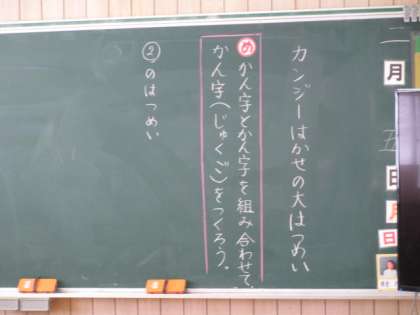 二月五日
月
日
カンジーはかせの大はつめい
め かん字とかん字を組み合わせて、
かん字(じゅくご)をつくろう。
②のはつめい